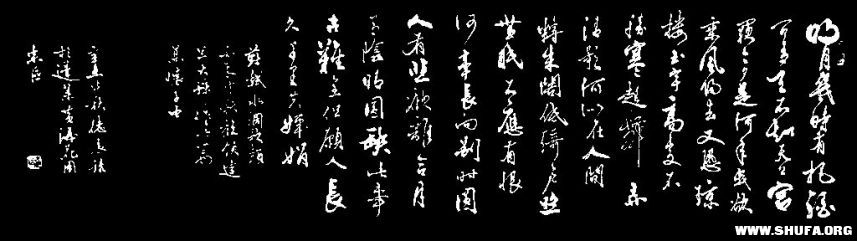 明月幾時有把酒
問青天不知天上宮
闕今夕是何年我欲
乘風歸去又恐瓊
樓玉宇高處不
勝寒起舞弄
清影何似在人間
轉朱閣低綺戶照
無眠不應有恨
何事長向別時圓
人有悲歡離合月
有陰晴圓缺此事
古難全但願人長
久千里共嬋娟
蘇軾水調歌頭
丙辰中秋歡飲達
旦大醉作此篇
兼懷子由
WWW.SHUFA.ORG